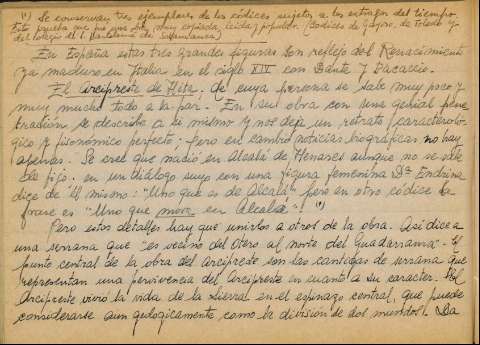 (1) Se conservan tres ejemplares de los códices sujetos a los estragos del tiempo.
Esto prueba que fue una obra muy copiada, leída y popular. (Codices de Gayoso, de Toledo y
del colegio de S. Bartolomé de Salamanca)
En España estas tres grandes figuras son reflejo del Renacimiento
ya maduro en Italia en el siglo XIV con Dante y Bocaccio.
El Arcipreste de Hita. De cuya persona se sabe muy poco y
muy mucho todo a la par. En su obra con una genial pene
tración se describe a si mismo y nos deja un retrato caracteroló-
gico y fisonómico perfecto; pero en cambio noticias biográficas no hay
apenas. Se cree que nació en Alcalá de Henares aunque no se sabe
de fijo. en un diálogo suyo con una figura femenina Dª Endrina
dice de él mismo: "Uno que es de Alcalá" pero en otro códice la
frase es "Uno que mora en Alcalá".! (1)
Pero estos detalles hay que unirlos a otros de la obra. Asi dice a
una serrana que "es vecino del Otero al norte del Guadarrama". El
punto central de la obra del arcipreste son las cantigas de serrana que
representan una pervivencia del Arcipreste en cuanto a su caracter. El
Arcipreste vivió la vida de la sierra en el espinazo central, que puede
considerarse aun geologicamente como la división de dos mundos. La